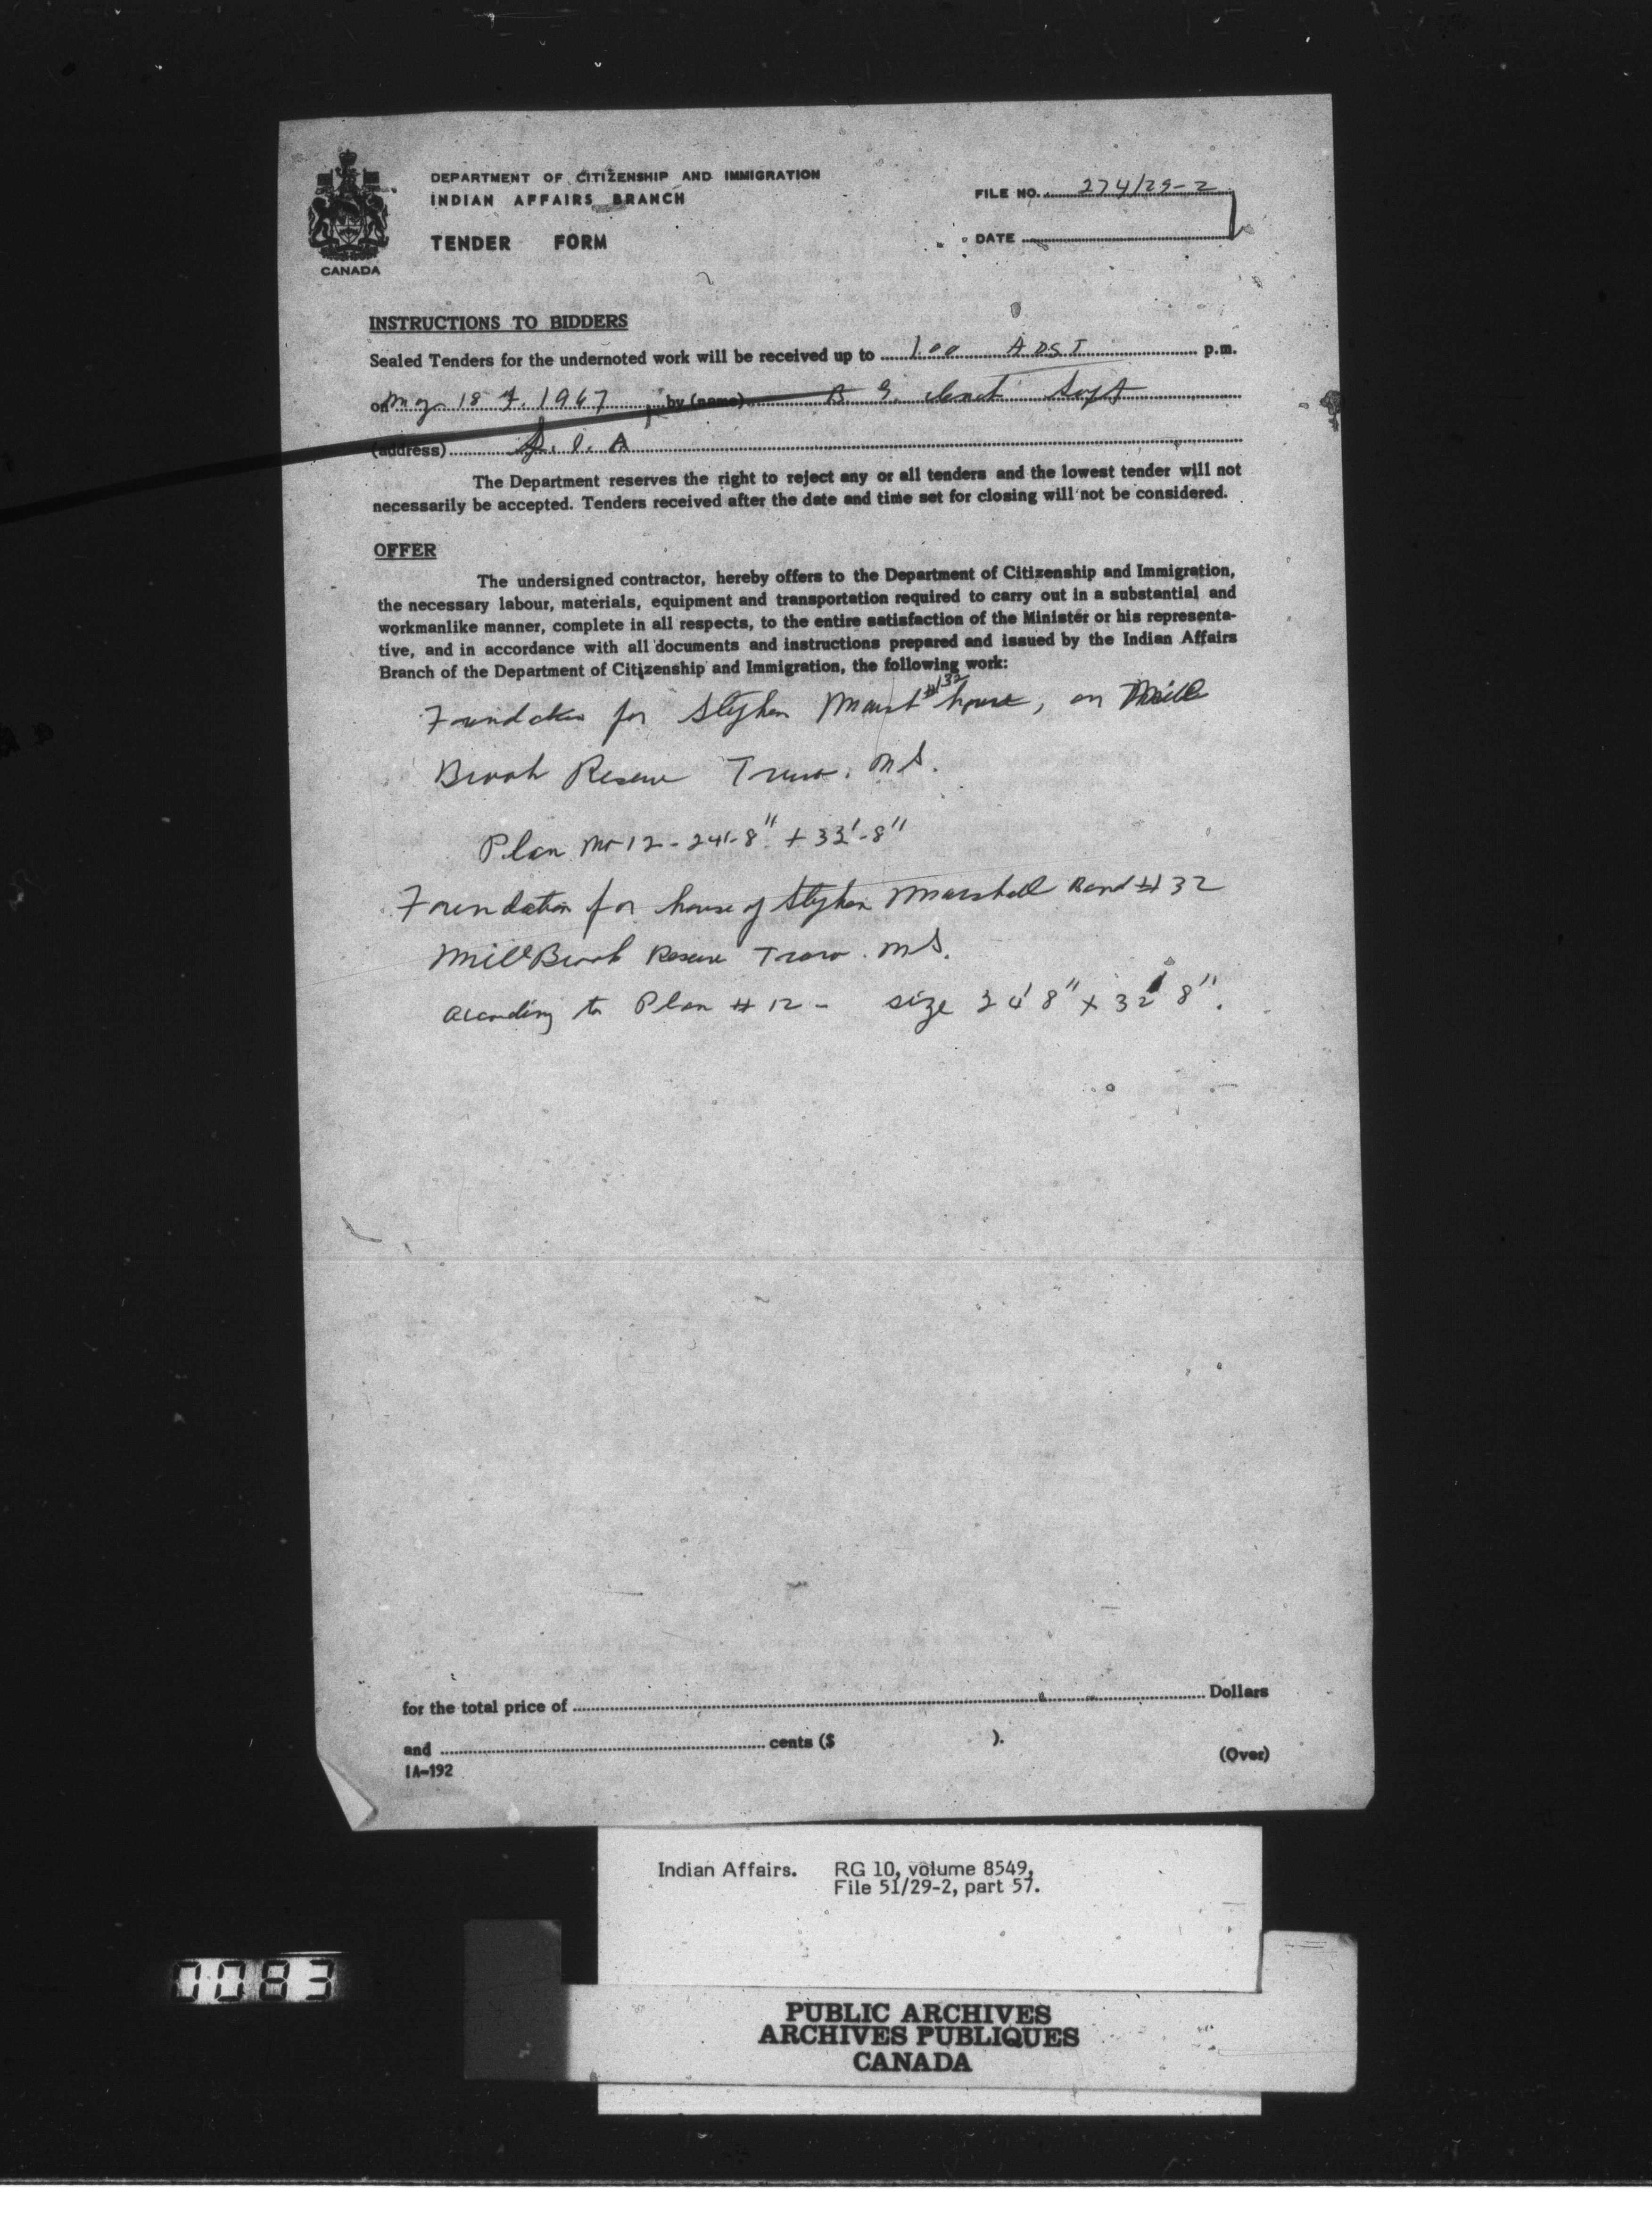 CANADA
DEPARTMENT OF CITIZENSHIP AND IMMIGRATION
INDIAN AFFAIRS BRANCH
TENDER FORM
FILE NO. 274/29-2
DATE
INSTRUCTIONS TO BIDDERS
Sealed Tenders for the undernoted work will be received up to 1.00 A.D.S.T p.m.
on May 18 1967, by (name) B G Supt
(address) S. I. A
The Department reserves the right to reject any or all tenders and the lowest tender will not
necessarily be accepted. Tenders received after the date and time set for closing will not be considered.
OFFER
The undersigned contractor, hereby offers to the Department of Citizenship and Immigration,
the necessary labour, materials, equipment and transportation required to carry out in a substantial and
workmanlike manner, complete in all respects, to the entire satisfaction of the Minister or his representa-
tive, and in accordance with all documents and instructions prepared and issued by the Indian Affairs
Branch of the Department of Citizenship and Immigration, the following work:
Foundation for Stephen #132 house, on Mill
Brook Reserve Truro. N.S.
Plan No 12 - 24'-8" + 33'-8"
Foundation for house of Stephen Marshall Band # 32
Mill Brook Reserve Truro. N.S.
According to Plan # 12 - size 24' 8" x 32' 8".
for the total price of Dollars
and cents ($ ).
IA-192
(Over)
Indian Affairs. RG 10, volume 8549,
File 51/29-2, part 57.
0083
PUBLIC ARCHIVES
ARCHIVES PUBLIQUES
CANADA